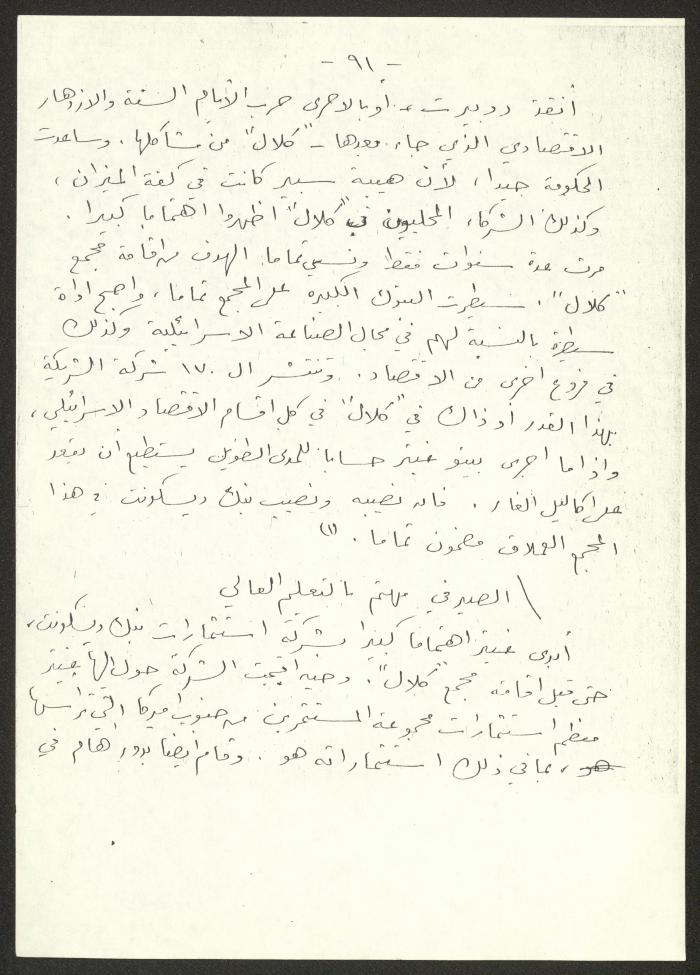 - ٩١ -
أنقذ روبيرت، أو بالاحرى حرب الأيام الستة والازدهار
الاقتصادي الذي جاء بعدها - "كلال" من مشاكلها. وساعدت
الحكومة جيدا، لأن هيبة سبير كانت في كفة الميزان،
وكذلك الشركاء المحليون في "كلال" اظهروا اهتماما كبيرا.
مرت عدة سنوات فقط ونسي تماما الهدف من اقامة مجمع
"كلال". سيطرت البنوك الكبيرة على المجمع تماما، واصبح اداة
سيطرة بالنسبة لهم في مجال الصناعة الاسرائيلية وكذلك
في فروع اخرى من الاقتصاد. وتنتشر ال ١٧٠ شركة الشريكة
بهذا القدر أو ذاك في "كلال" في كل اقسام الاقتصاد الاسرائيلي،
واذا ما اجرى بينو غيتر حسابا للمدى الطويل يستطيع ان يقعد
على اكاليل الغار. فان نصيبه ونصيب بنك ديسكونت في هذا
المجمع العملاق مضمون تماما. (١)
\ الصيرفي مهتم بالتعليم العالي
أبدى غيتر اهتماما كبيرا بشركة استثمارات بنك ديسكونت،
حتى قبل اقامة مجمع "كلال". وحينه اقيمت الشركة حول اليها غيتر
معظم استثمارات مجموعة المستثمرين من جنوب امريكا التي ترأسها
هو، بما في ذلك استثماراته هو. وقام ايضا بدور هام في